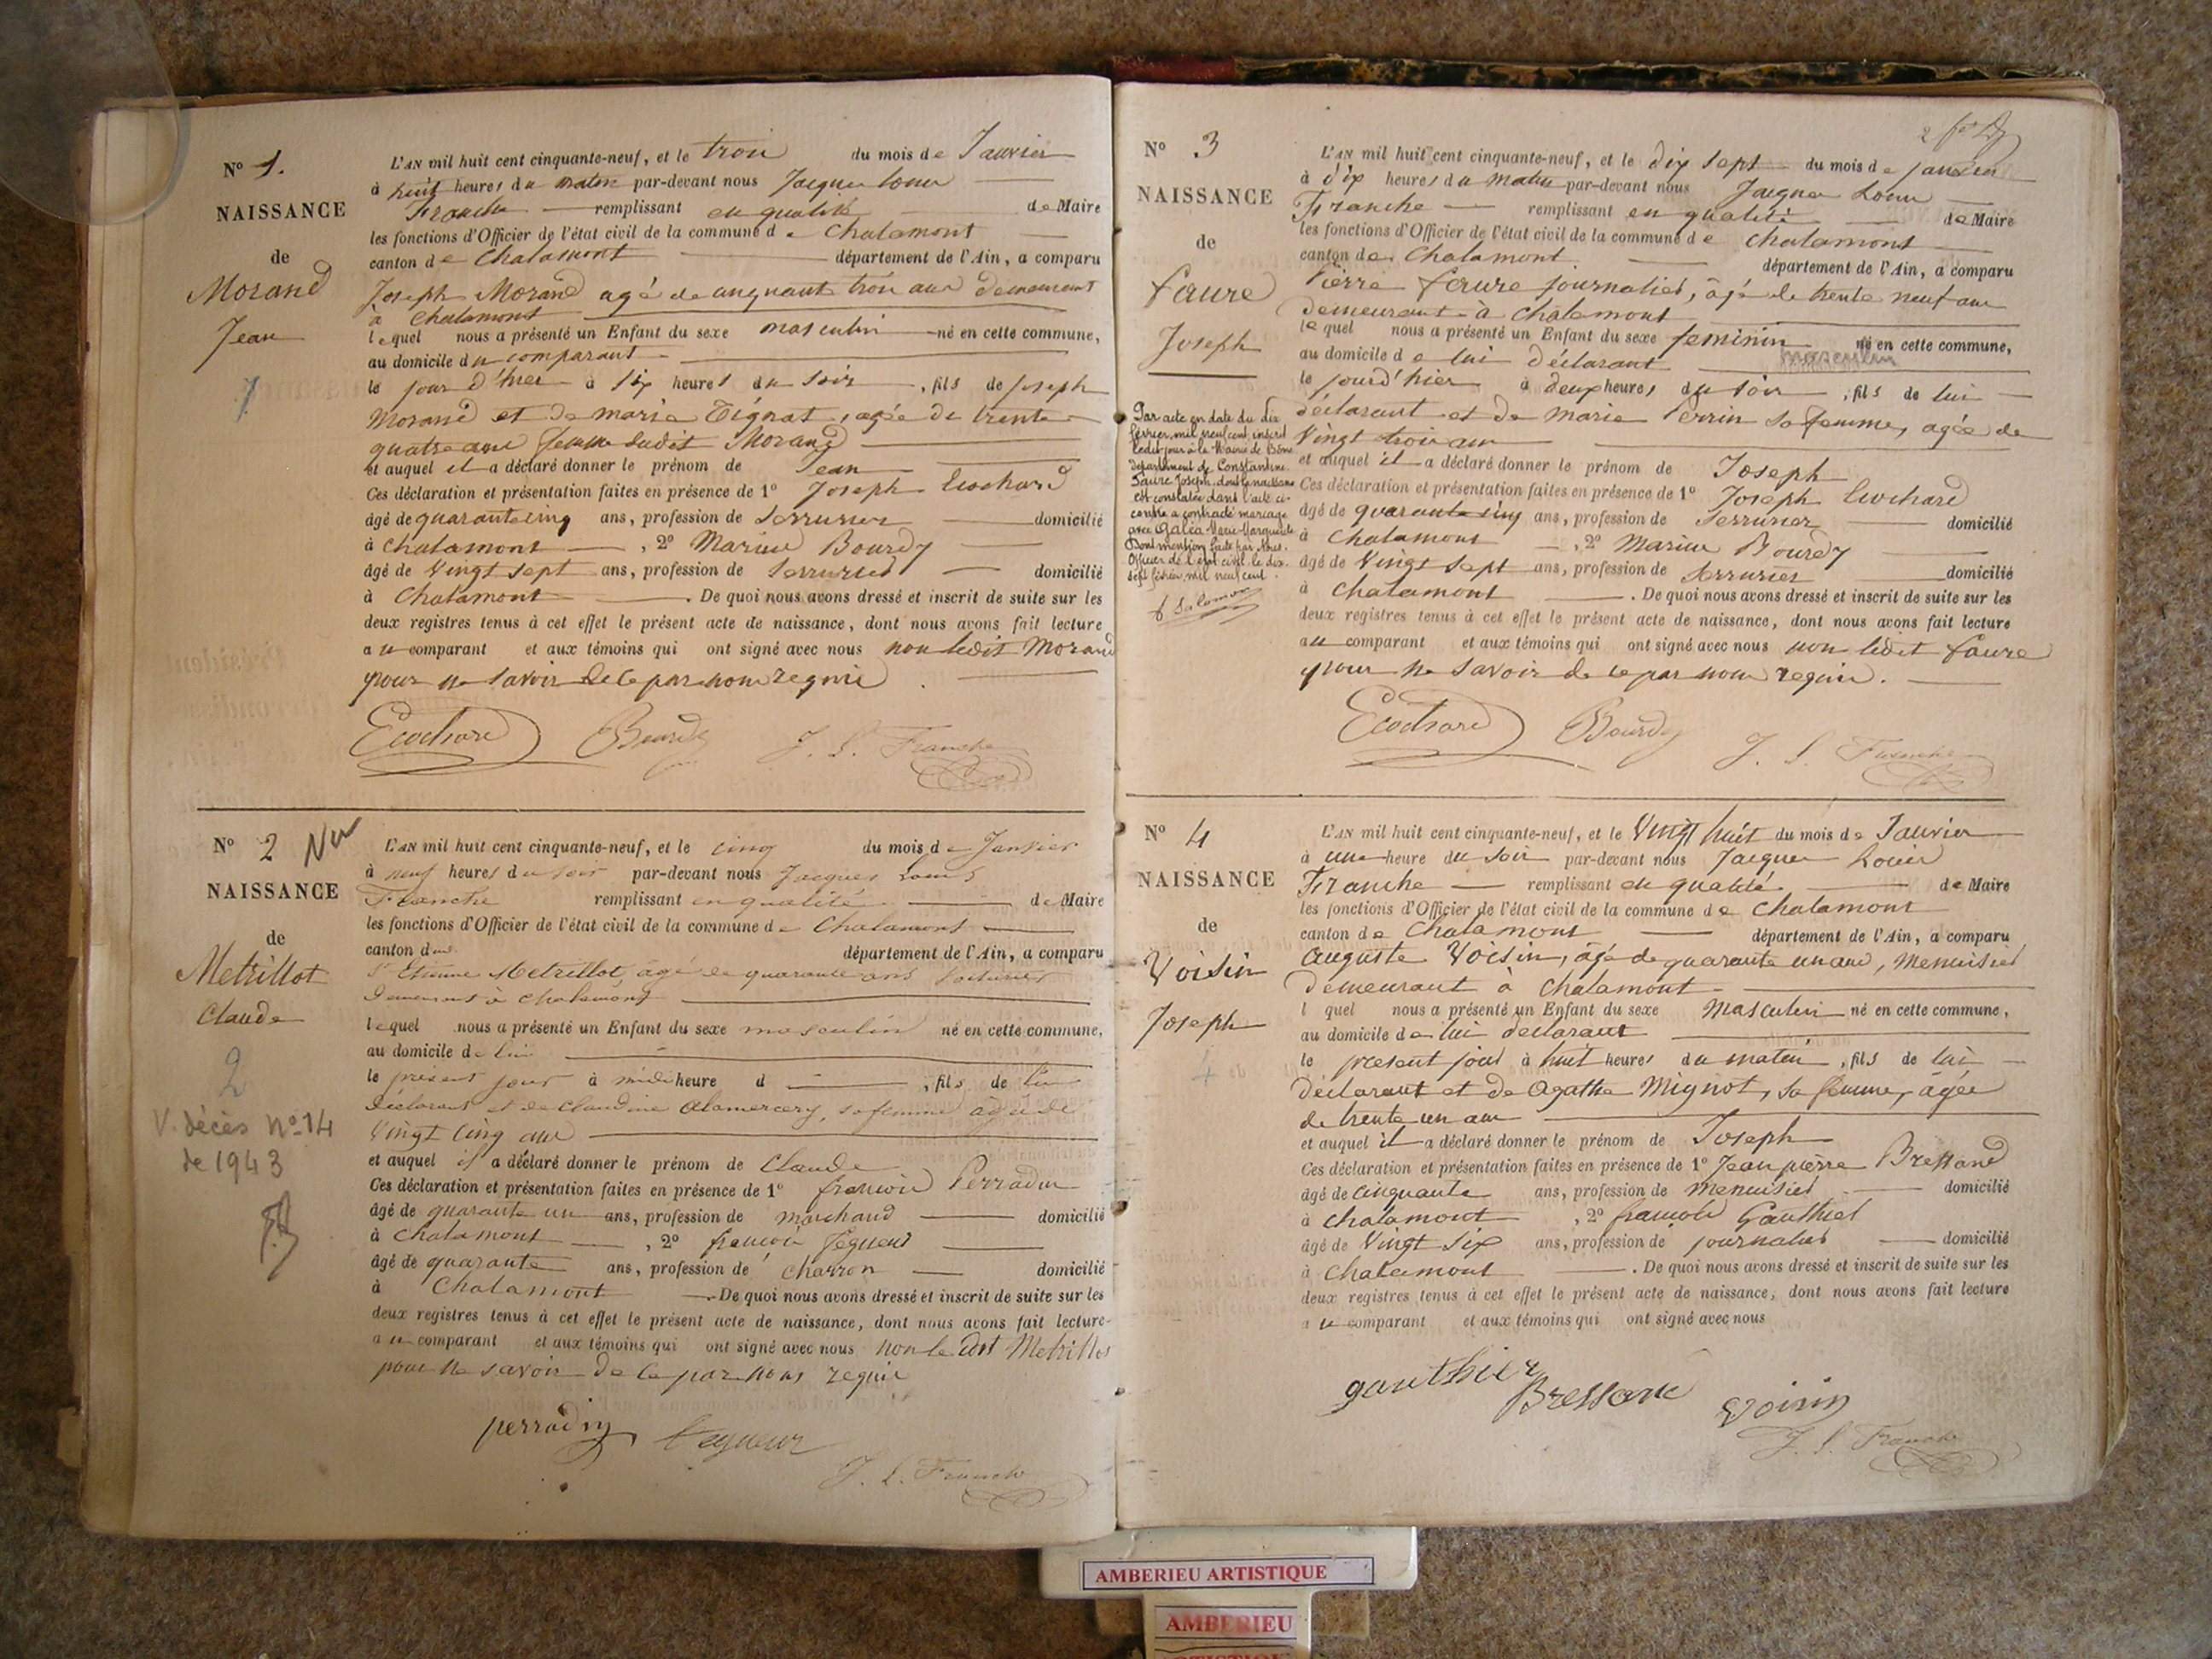 Nº 1.
NAISSANCE
de
Morand
Jean
1
L'AN mil huit cent cinquante-neuf, et le trois du mois de Janvier
à huit heures du matin par-devant nous Jacques Louis
Franche remplissant en qualité de Maire
les fonctions d'Officier de l'état civil de la commune de Chalamont
canton de Chalamont département de l'Ain, a comparu
Joseph Morand agé de cinquante trois ans demeurant
à Chalamont
lequel nous a présenté un Enfant du sexe masculin né en cette commune,
au domicile du comparant
le jour d'hier à six heures du soir, fils de Joseph
Morand et de marie Tignat, agée de trente
quatre ans femme dudit Morand
et auquel il a déclaré donner le prénom de Jean
Ces déclaration et présentation faites en présence de 1º Joseph Ecochard
âgé de quarante cinq ans, profession de Serrurier domicilié
à Chalamont, 2º Marius Bourdy
âgé de Vingt sept ans, profession de Serrurier domicilié
à Chalamont. De quoi nous avons dressé et inscrit de suite sur les
deux registres tenus à cet effet le présent acte de naissance, dont nous avons fait lecture
au comparant et aux témoins qui ont signé avec nous non ledit Morand
pour ne savoir de ce par nous requis.
Ecochard Bourdy J. L. Franche
Nº 2
NAISSANCE
de
Metrillot
Claude
2
V. décès nº 14
de 1943
L'AN mil huit cent cinquante-neuf, et le cinq du mois de Janvier
à neuf heures du soir par-devant nous Jacques Louis
Franche remplissant en qualité de Maire
les fonctions d'Officier de l'état civil de la commune de Chalamont
canton dud. département de l'Ain, a comparu
Sr Etienne Metrillot, âgé de quarante ans voiturier
demeurant à Chalamont
lequel nous a présenté un Enfant du sexe masculin né en cette commune,
au domicile de lui
le présent jour à midi heure d, fils de lui
déclarant et de Claudine Alamercery, sa femme âgée de
Vingt cinq ans
et auquel il a déclaré donner le prénom de Claude
Ces déclaration et présentation faites en présence de 1º françois Perradin
âgé de quarante un ans, profession de marchand domicilié
à Chalamont, 2º françois
âgé de quarante ans, profession de charron domicilié
à Chalamont. De quoi nous avons dressé et inscrit de suite sur les
deux registres tenus à cet effet le présent acte de naissance, dont nous avons fait lecture
au comparant et aux témoins qui ont signé avec nous non le dit Metrillot
pour ne savoir de ce par nous requis
perradin J. L. Franche
Nº 3
NAISSANCE
de
Faure
Joseph
Par acte en date du dix
février, mil neuf cent, inscrit
ledit jour à la Mairie de Bône
département de Constantine.
Faure Joseph, dont la naissance
est constatée dans l'acte ci-
contre a contracté mariage
avec Galéa Marie Marguerite
Dont mention faite par Nous.
Officier de l'état civil. le dix-
sept février, mil neuf cent.
Salomon
2
L'AN mil huit cent cinquante-neuf, et le dix sept du mois de janvier
à dix heures du matin par-devant nous Jacques Louis
Franche remplissant en qualité de Maire
les fonctions d'Officier de l'état civil de la commune de Chalamont
canton de Chalamont département de l'Ain, a comparu
Pierre Faure journalier, âgé de trente neuf ans
demeurant à Chalamont
lequel nous a présenté un Enfant du sexe feminin né en cette commune,
masculin
au domicile de lui déclarant
le jour d'hier à deux heures du soir, fils de lui
déclarant et de Marie Perrin sa femme, agée de
Vingt trois ans
et auquel il a déclaré donner le prénom de Joseph
Ces déclaration et présentation faites en présence de 1º Joseph Ecochard
âgé de quarante cinq ans, profession de Serrurier domicilié
à Chalamont, 2º Marius Bourdy
âgé de Vingt sept ans, profession de Serrurier domicilié
à Chalamont. De quoi nous avons dressé et inscrit de suite sur les
deux registres tenus à cet effet le présent acte de naissance, dont nous avons fait lecture
au comparant et aux témoins qui ont signé avec nous non ledit Faure
pour ne savoir de ce par nous requis.
Ecochard Bourdy J. L. Franche
Nº 4
NAISSANCE
de
Voisin
Joseph
4
L'AN mil huit cent cinquante-neuf, et le Vingt huit du mois de Janvier
à une heure du soir par-devant nous Jacques Louis
Franche remplissant en qualité de Maire
les fonctions d'Officier de l'état civil de la commune de Chalamont
canton de Chalamont département de l'Ain, a comparu
Auguste Voisin, âgé de quarante un ans, Menuisier
demeurant à Chalamont
l quel nous a présenté un Enfant du sexe Masculin né en cette commune,
au domicile de lui déclarant
le présent jour à huit heures du matin, fils de lui
déclarant et de Agathe Mignot, sa femme, âgée
de trente un ans
et auquel il a déclaré donner le prénom de Joseph
Ces déclaration et présentation faites en présence de 1º Jean pierre Bressand
âgé de cinquante ans, profession de menuisier domicilié
à Chalamont, 2º françois Gauthier
âgé de Vingt six ans, profession de journalier domicilié
à Chalamont. De quoi nous avons dressé et inscrit de suite sur les
deux registres tenus à cet effet le présent acte de naissance, dont nous avons fait lecture
au comparant et aux témoins qui ont signé avec nous
gauthier Bressand Voisin
J. L. Franche
AMBERIEU ARTISTIQUE
AMBERIEU
ARTISTIQUE